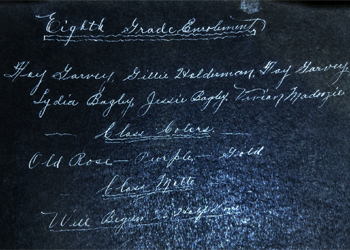 Eighth Grade Enrolment
Hoy Garvey, Gillie Holderman, Fay Garvey,
Lydia Bagby, Jessie Bagby, Vivian Mackenzie
Class Colors
Old Rose - Purple - Gold
Class Motto
Will Begin